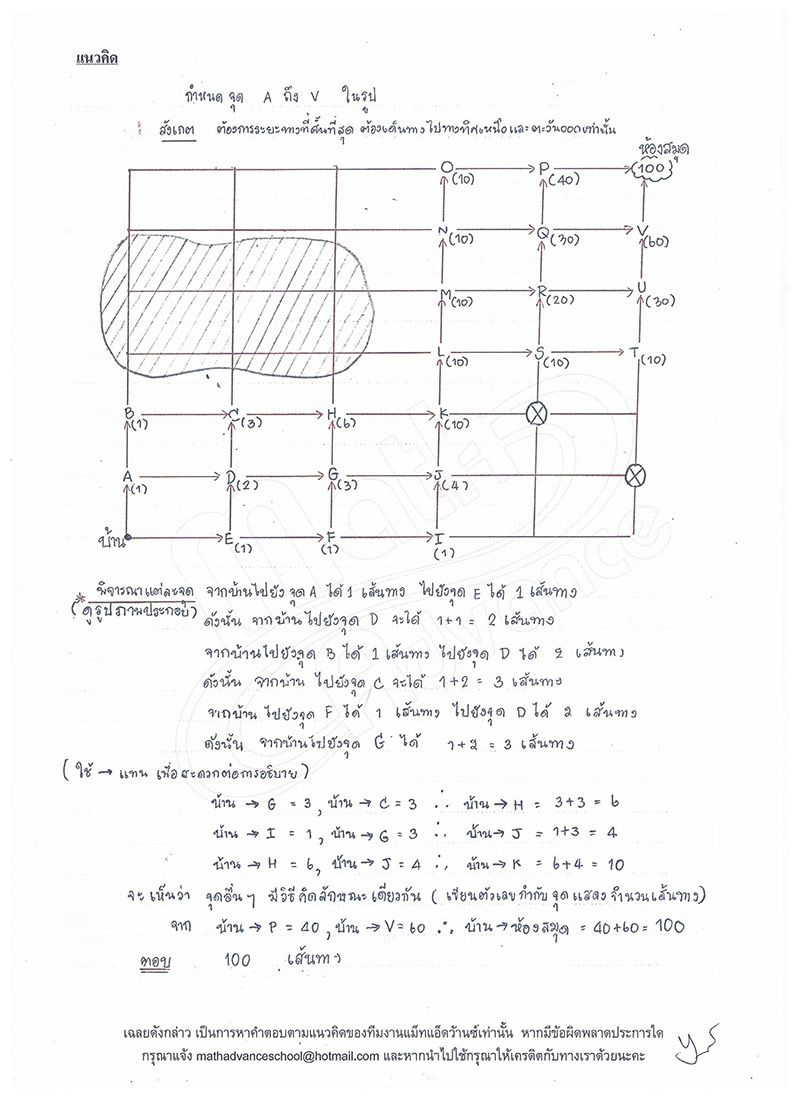 แนวคิด
กำหนด จุด A ถึง V ในรูป
สังเกต ต้องการระยะทางที่สั้นที่สุด ต้องเดินทางไปทางทิศเหนือและตะวันออกเท่านั้น
ห้องสมุด
O (10) P (40) (100)
N (10) Q (30) V (60)
M (10) R (20) U (30)
L (10) S (10) T (10)
B (1) C (3) H (6) K (10)
A (1) D (2) G (3) J (4)
บ้าน E (1) F (1) I (1)
* พิจารณาแต่ละจุด จากบ้านไปยังจุด A ได้ 1 เส้นทาง ไปยังจุด E ได้ 1 เส้นทาง
(ดูรูปภาพประกอบ) ดังนั้น จากบ้านไปยังจุด D จะได้ 1+1 = 2 เส้นทาง
จากบ้านไปยังจุด B ได้ 1 เส้นทาง ไปยังจุด D ได้ 2 เส้นทาง
ดังนั้น จากบ้าน ไปยังจุด C จะได้ 1+2 = 3 เส้นทาง
จากบ้านไปยังจุด F ได้ 1 เส้นทาง ไปยังจุด D ได้ 2 เส้นทาง
ดังนั้น จากบ้านไปยังจุด G ได้ 1+2 = 3 เส้นทาง
(ใช้ → แทน เพื่อสะดวกต่อการอธิบาย)
บ้าน → G = 3, บ้าน → C = 3 ∴ บ้าน → H = 3+3 = 6
บ้าน → I = 1, บ้าน → G = 3 ∴ บ้าน → J = 1+3 = 4
บ้าน → H = 6, บ้าน → J = 4 ∴ บ้าน → K = 6+4 = 10
จะเห็นว่า จุดอื่นๆ มีวิธีคิดลักษณะเดียวกัน (เขียนตัวเลขกำกับจุดแสดงจำนวนเส้นทาง)
จาก บ้าน → P = 40, บ้าน → V = 60 ∴ บ้าน → ห้องสมุด = 40+60 = 100
ตอบ 100 เส้นทาง
เฉลยดังกล่าว เป็นการหาคำตอบตามแนวคิดของทีมงานแม็ทแอ็ดว้านซ์เท่านั้น หากมีข้อผิดพลาดประการใด
กรุณาแจ้ง mathadvanceschool@hotmail.com และหากนำไปใช้กรุณาให้เครดิตกับทางเราด้วยนะคะ